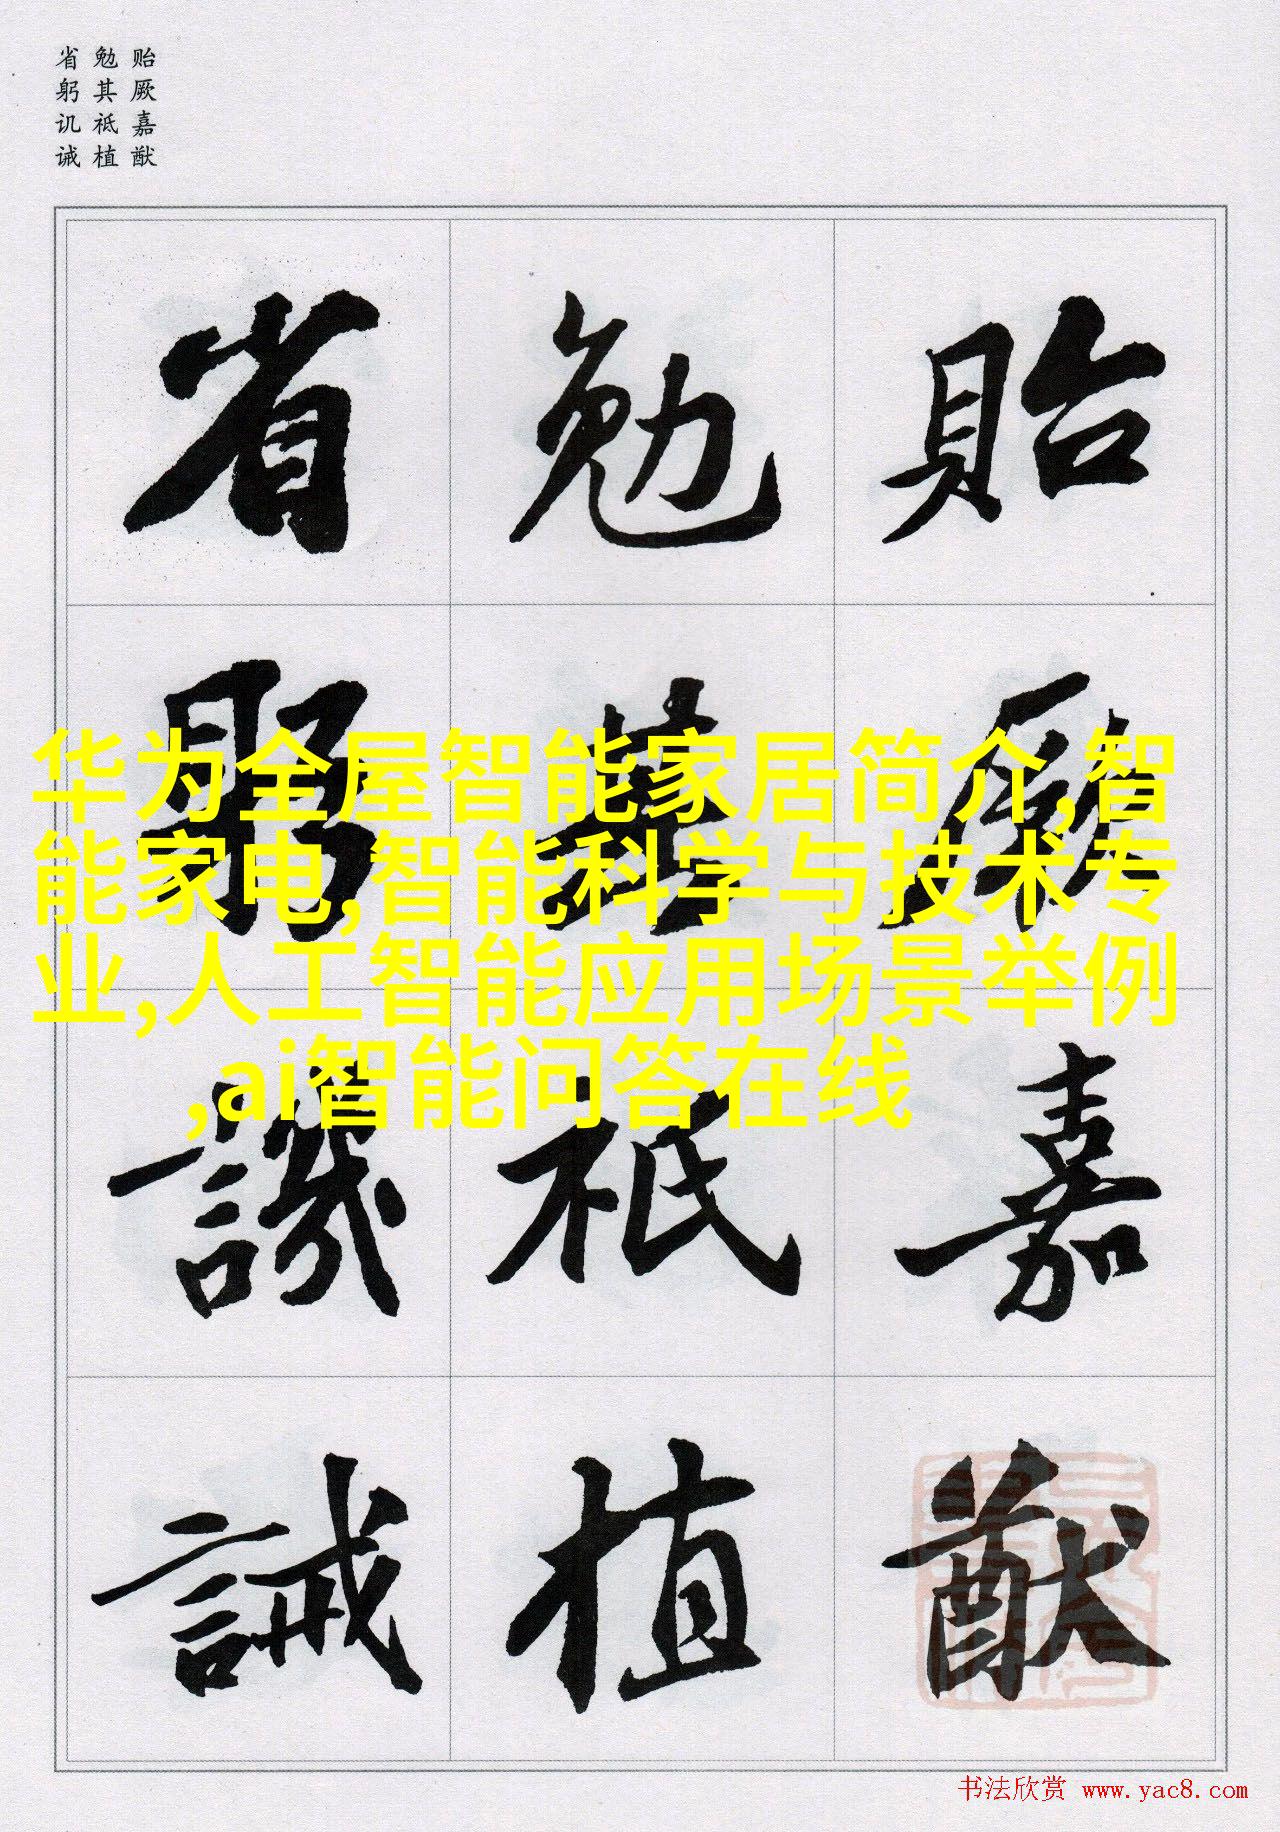 贻厥嘉猷
勉其祗植
省躬讥诫
貽厥嘉猷
勉其祗植
省躬譏誡
华为全屋智能家居简介,智
能家电,智能科学与技术专
业,人工智能应用场景举例
,ai智能问答在线
书法欣赏 www.yac8.com